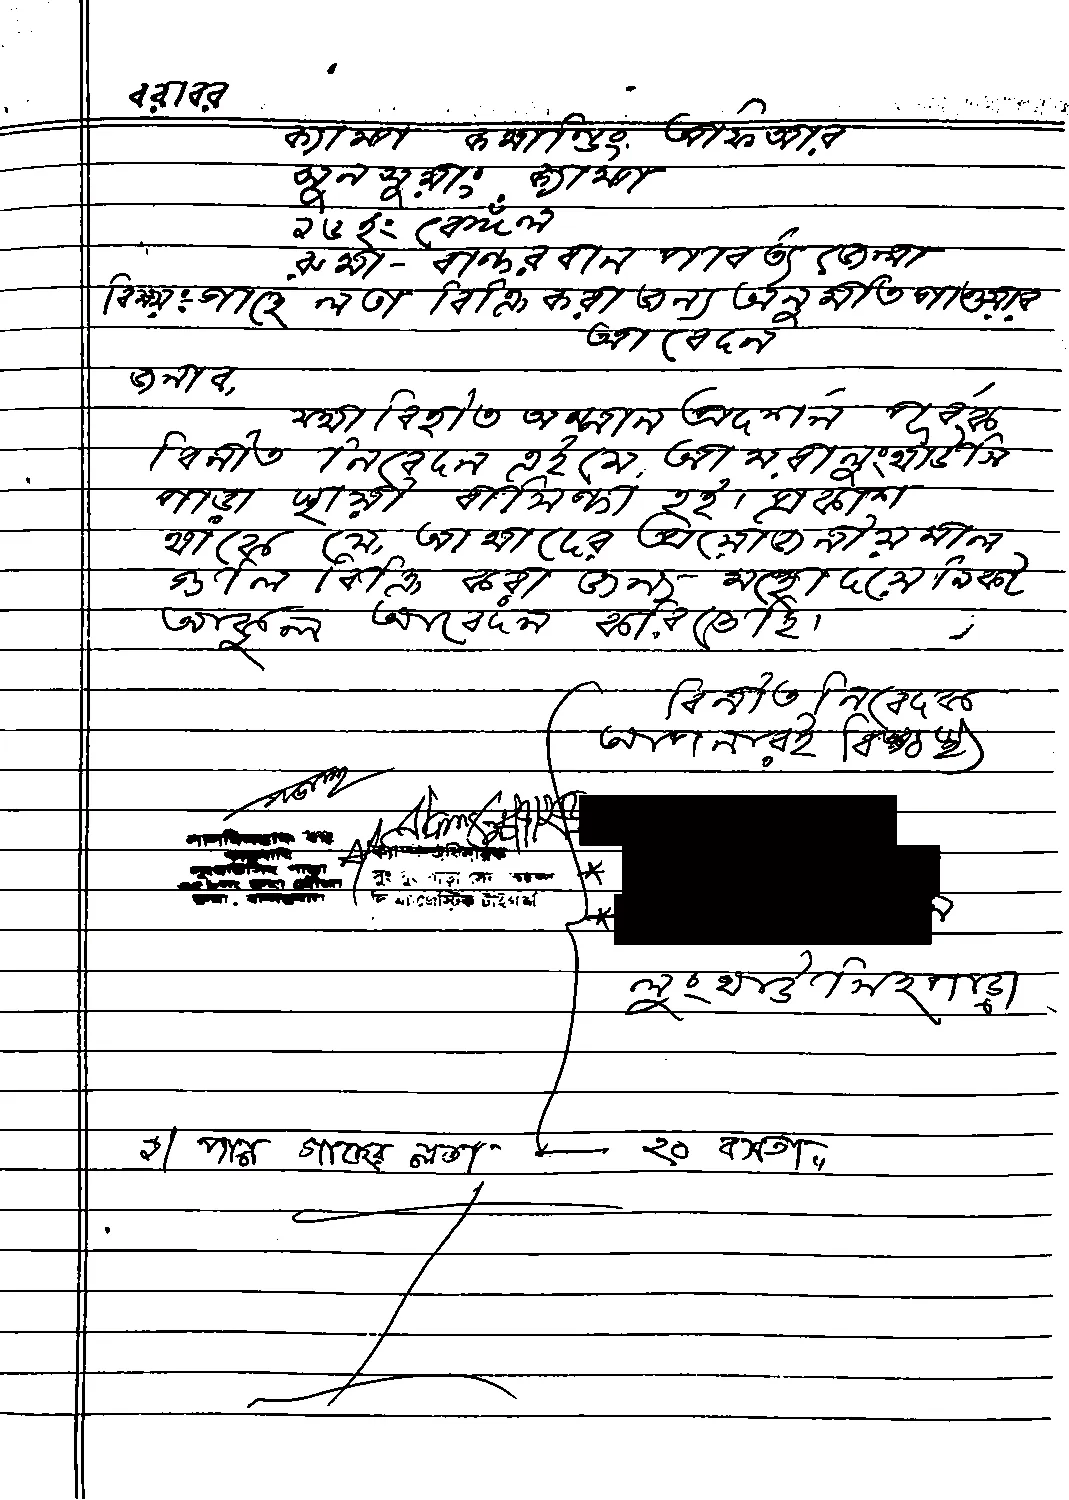 বরাবর
ক্যাম্প কমান্ডিং অফিআর
সুনসুয়াং ক্যাম্প
২৬ ইং বেঙ্গল
রুমা - বান্দরবান পার্বত্য জেলা
বিষয়ঃ গাছে লতা বিক্রি করা জন্য অনুমতি পাওয়ার
আবেদন
জনাব,
যথা বিহীত সম্মান প্রদর্শন পূর্বক
বিনীত নিবেদন এই যে, আমরা লুংথাউসি
পাড়া স্থায়ী বাসিন্দা হই। প্রকাশ
থাকে যে, আমাদের প্রয়োজনীয় মাল
গুলি বিক্রি করা জন্য মহোদয়ে নিকট
আকুল আবেদন করিতেছি।
বিনীত নিবেদক
আপনারই বিশ্বস্থ
ক্যাম্প অধিনায়ক
লুংথাউসিহ পাড়া
২। পান গাছের লতা — ২০ বসতা